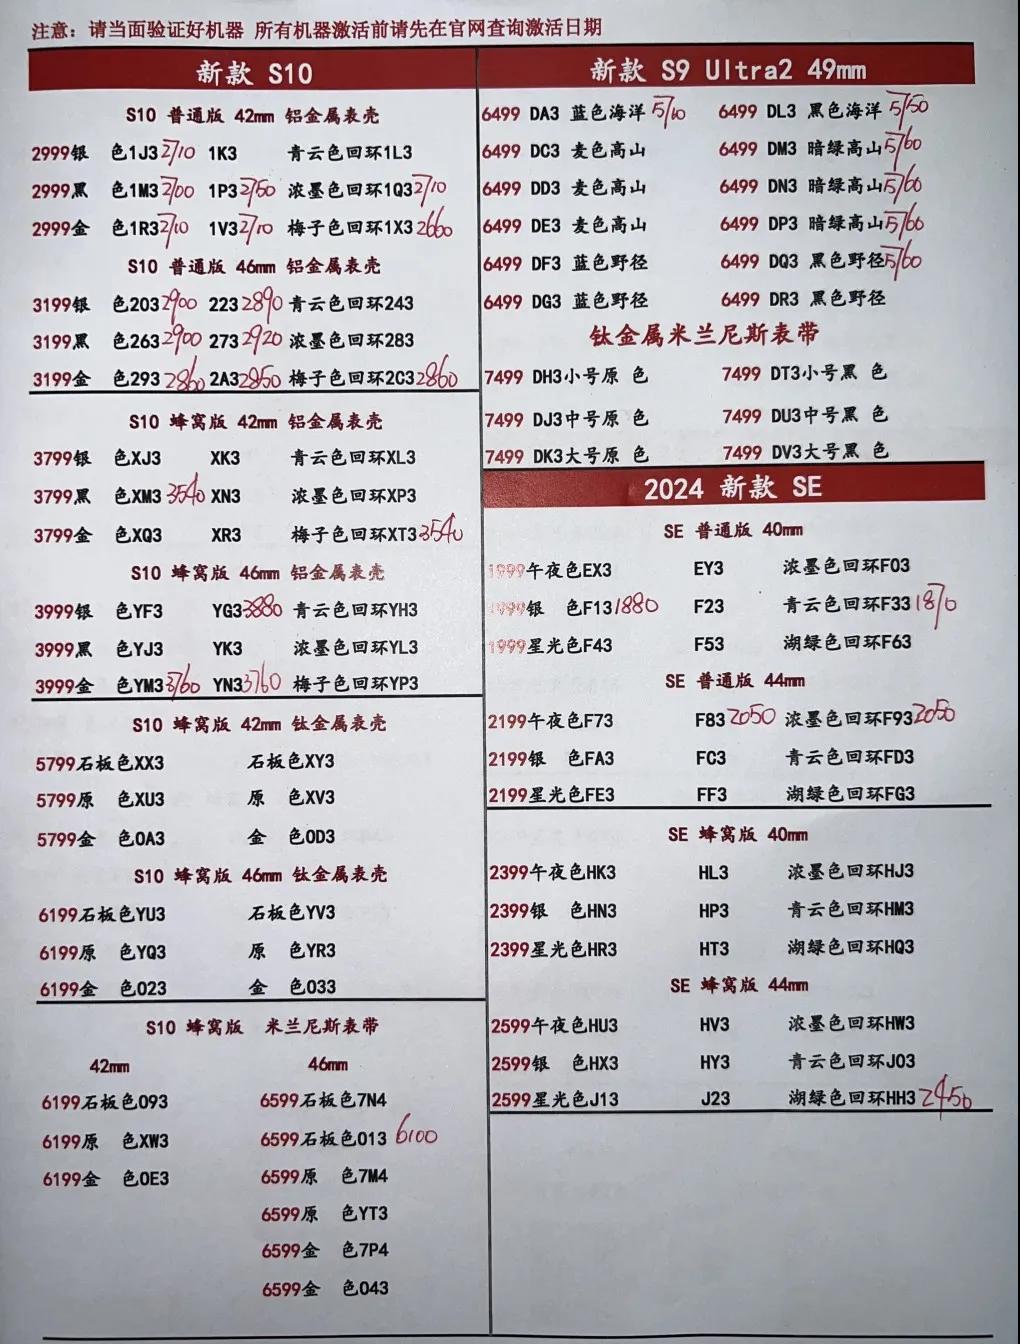 注意：请当面验证好机器 所有机器激活前请先在官网查询激活日期
新款 S10
S10 普通版 42mm 铝金属表壳
2999银 色1J3 2710 1K3 青云色回环1L3
2999黑 色1M3 2700 1P3 2750 浓墨色回环1Q3 2710
2999金 色1R3 2710 1V3 2710 梅子色回环1X3 2660
S10 普通版 46mm 铝金属表壳
3199银 色203 2900 223 2890 青云色回环243
3199黑 色263 2900 273 2920 浓墨色回环283
3199金 色293 2860 2A3 2850 梅子色回环2C3 2860
S10 蜂窝版 42mm 铝金属表壳
3799银 色XJ3 XK3 青云色回环XL3
3799黑 色XM3 3540 XN3 浓墨色回环XP3
3799金 色XQ3 XR3 梅子色回环XT3 3540
S10 蜂窝版 46mm 铝金属表壳
3999银 色YF3 YG3 3880 青云色回环YH3
3999黑 色YJ3 YK3 浓墨色回环YL3
3999金 色YM3 3760 YN3 3760 梅子色回环YP3
S10 蜂窝版 42mm 钛金属表壳
5799石板色XX3 石板色XY3
5799原 色XU3 原 色XV3
5799金 色0A3 金 色0D3
S10 蜂窝版 46mm 钛金属表壳
6199石板色YU3 石板色YV3
6199原 色YQ3 原 色YR3
6199金 色023 金 色033
S10 蜂窝版 米兰尼斯表带
42mm 46mm
6199石板色093 6599石板色7N4
6199原 色XW3 6599石板色013 6100
6199金 色0E3 6599原 色7M4
6599原 色YT3
6599金 色7P4
6599金 色043
新款 S9 Ultra2 49mm
6499 DA3 蓝色海洋 5710 6499 DL3 黑色海洋 5750
6499 DC3 麦色高山 6499 DM3 暗绿高山 5760
6499 DD3 麦色高山 6499 DN3 暗绿高山 5760
6499 DE3 麦色高山 6499 DP3 暗绿高山 5760
6499 DF3 蓝色野径 6499 DQ3 黑色野径 5760
6499 DG3 蓝色野径 6499 DR3 黑色野径
钛金属米兰尼斯表带
7499 DH3小号原 色 7499 DT3小号黑 色
7499 DJ3中号原 色 7499 DU3中号黑 色
7499 DK3大号原 色 7499 DV3大号黑 色
2024 新款 SE
SE 普通版 40mm
1999午夜色EX3 EY3 浓墨色回环F03
1999银 色F13 1880 F23 青云色回环F33 1870
1999星光色F43 F53 湖绿色回环F63
SE 普通版 44mm
2199午夜色F73 F83 2050 浓墨色回环F93 2050
2199银 色FA3 FC3 青云色回环FD3
2199星光色FE3 FF3 湖绿色回环FG3
SE 蜂窝版 40mm
2399午夜色HK3 HL3 浓墨色回环HJ3
2399银 色HN3 HP3 青云色回环HM3
2399星光色HR3 HT3 湖绿色回环HQ3
SE 蜂窝版 44mm
2599午夜色HU3 HV3 浓墨色回环HW3
2599银 色HX3 HY3 青云色回环J03
2599星光色J13 J23 湖绿色回环HH3 2450